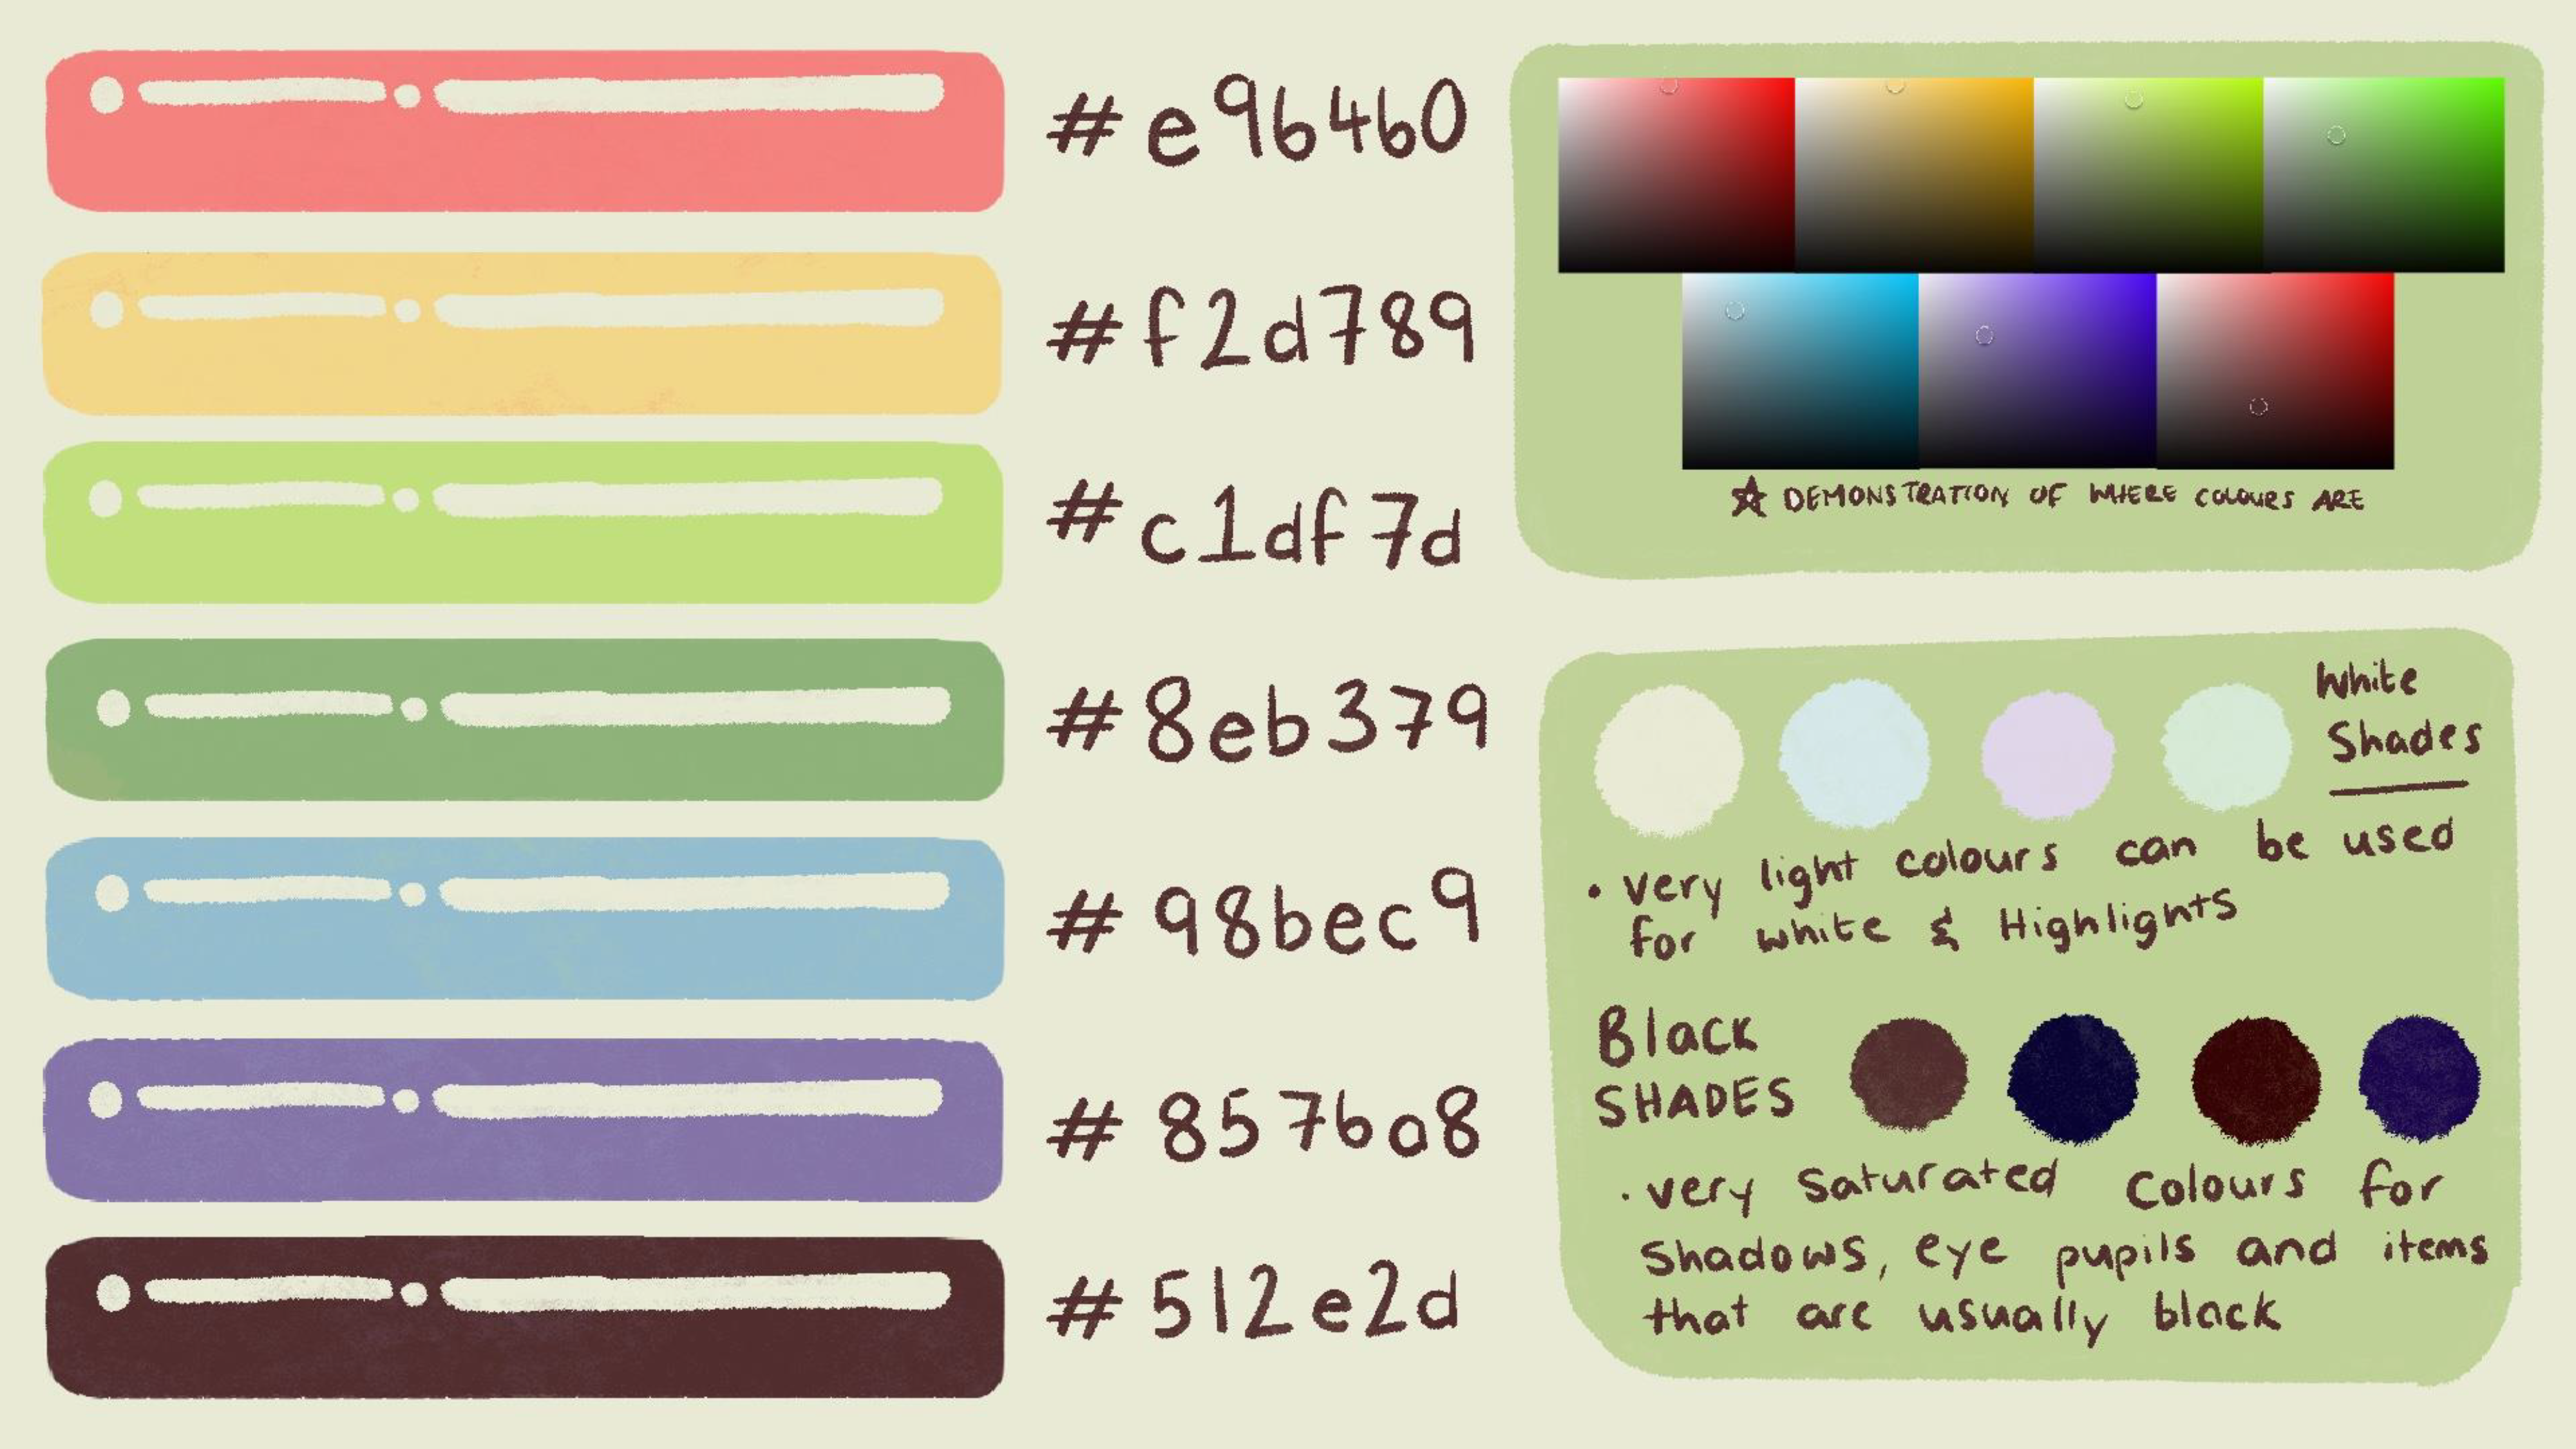 #e96460
#f2d789
#c1df7d
#8eb379
#98bec9
#857ba8
#512e2d
☆ DEMONSTRATION OF WHERE COLOURS ARE
White
Shades
• very light colours can be used
for white & Highlights
Black
SHADES
• very saturated colours for
Shadows, eye pupils and items
that are usually black